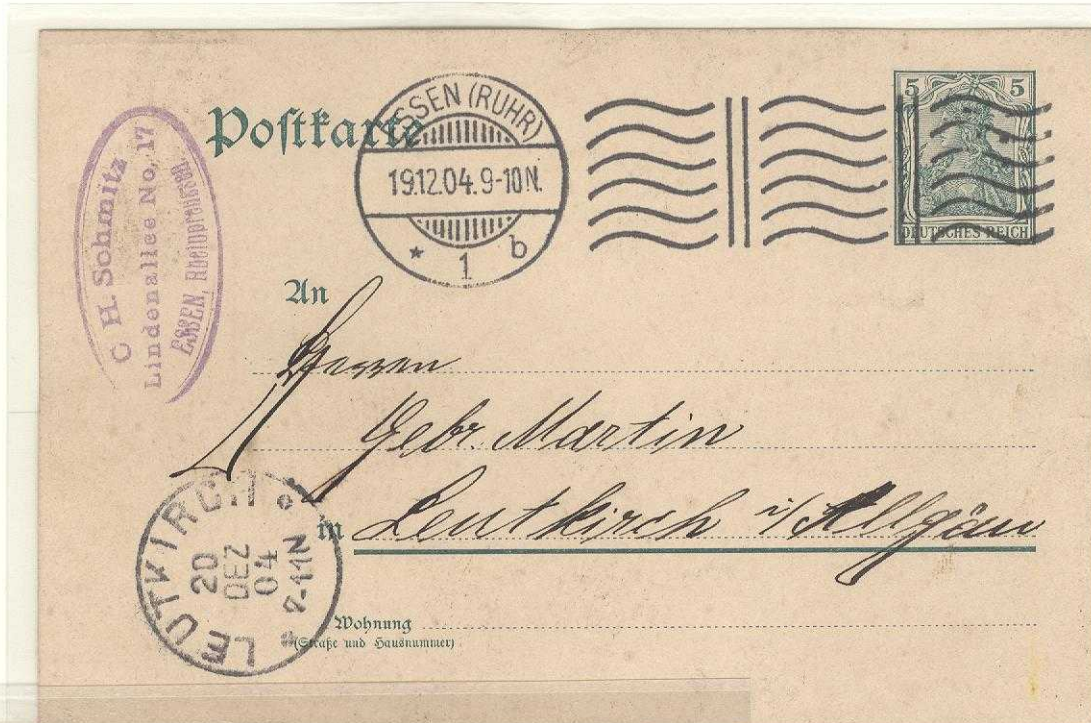 Postkarte
ESSEN (RUHR)
19.12.04.9-10N.
* 1 b
5 5
DEUTSCHES REICH
C H. Schmitz
Lindenallee No, 17
ESSEN, Rheinpr
An
Herren
Gebr. Martin
in Leutkirch i/Allgäu
LEUTKIRCH
20
DEZ
04
-11N
Wohnung
(Straße und Hausnummer)